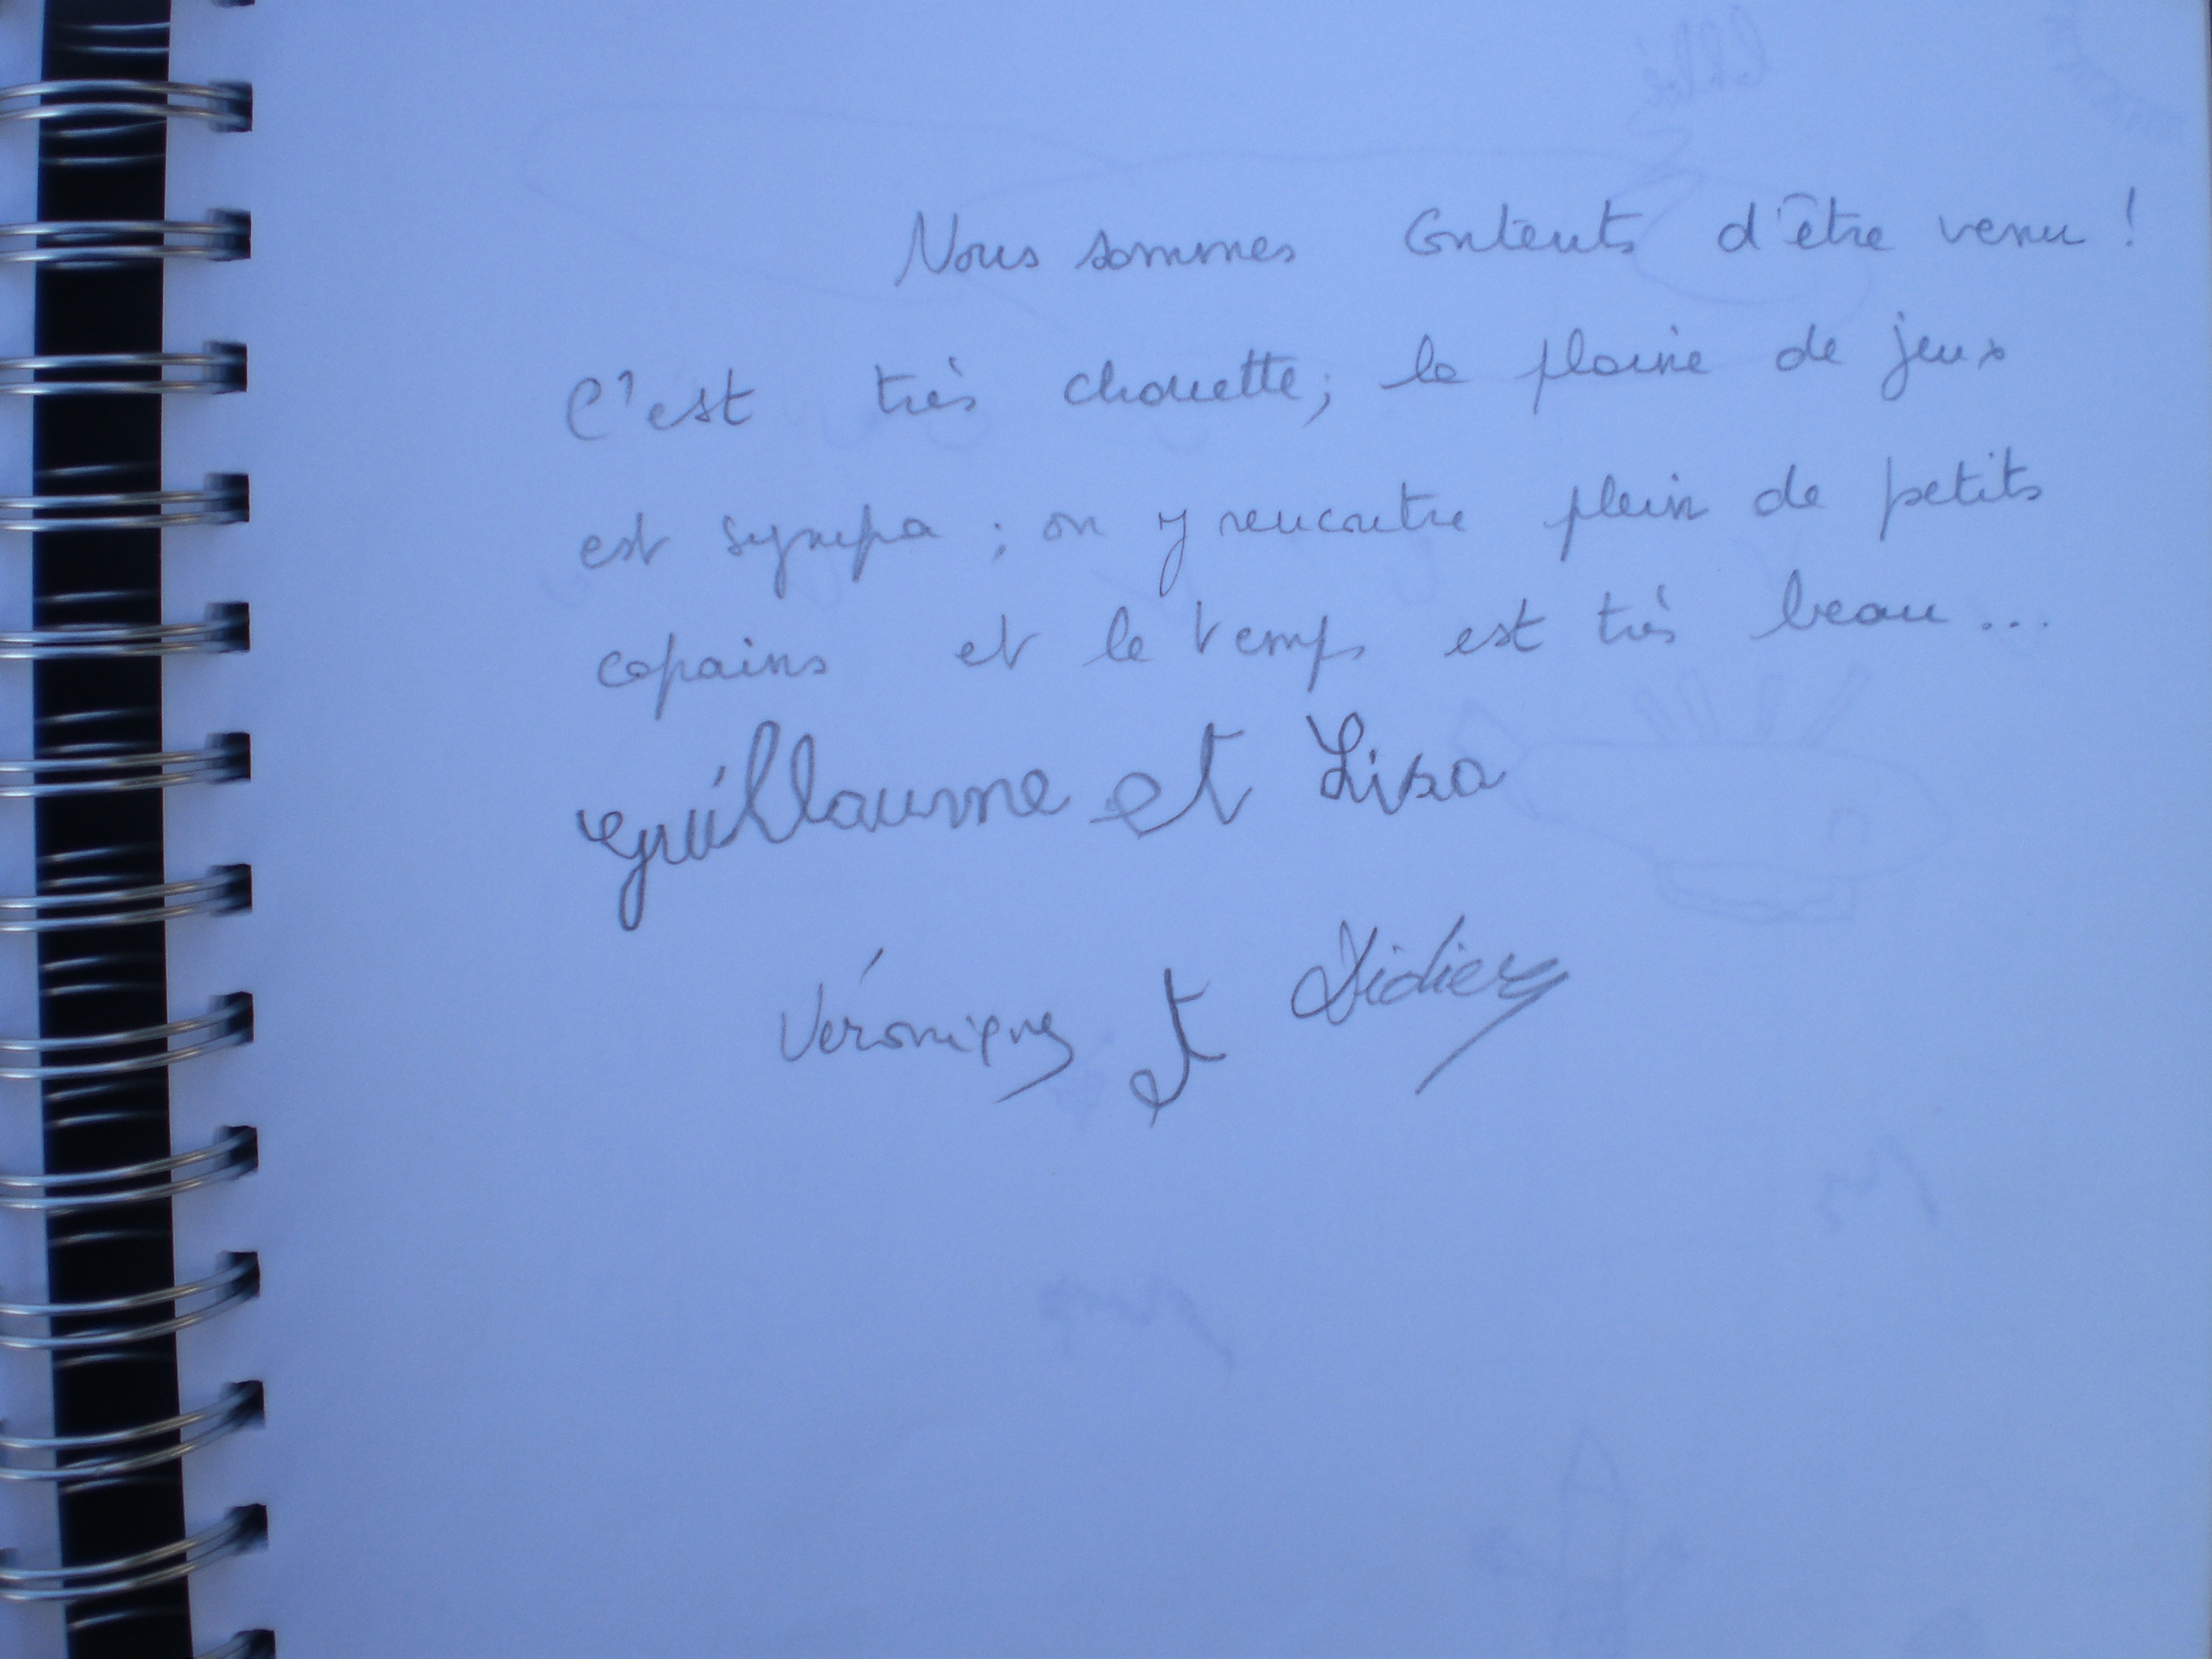 Nous sommes contents d'être venu !
C'est très chouette; la plaine de jeux
est sympa ; on y rencontre plein de petits
copains et le temps est très beau...
Guillaume et Lisa
Véronique et Didier